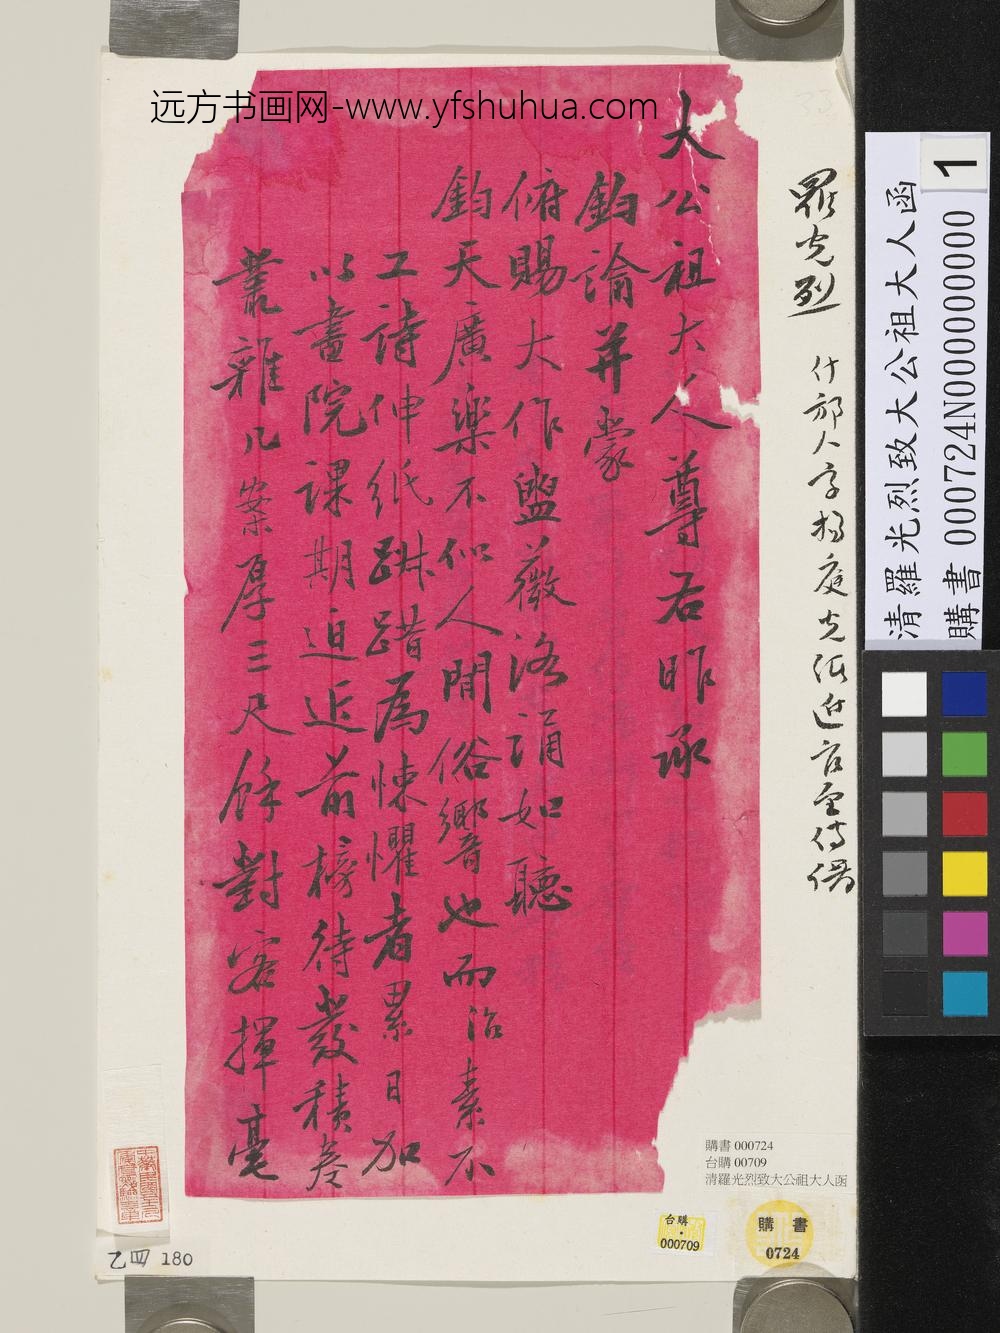 远方书画网-www.yfshuhua.com
大公祖大人尊右昨承
鈞諭并蒙
俯賜大作盥薇洛誦如聽
鈞天廣樂不似人間俗響也而治素不
工詩伸紙踧踖為悚懼者累日加
以書院課期迫近前榜待發積卷
叢雜几案厚三尺餘對客揮毫
羅光烈
什邡人字
1
清羅光烈致大公祖大人函
購書 000724N000000000
購書 000724
台購 00709
清羅光烈致大公祖大人函
台購
000709
購書
0724
乙四 180